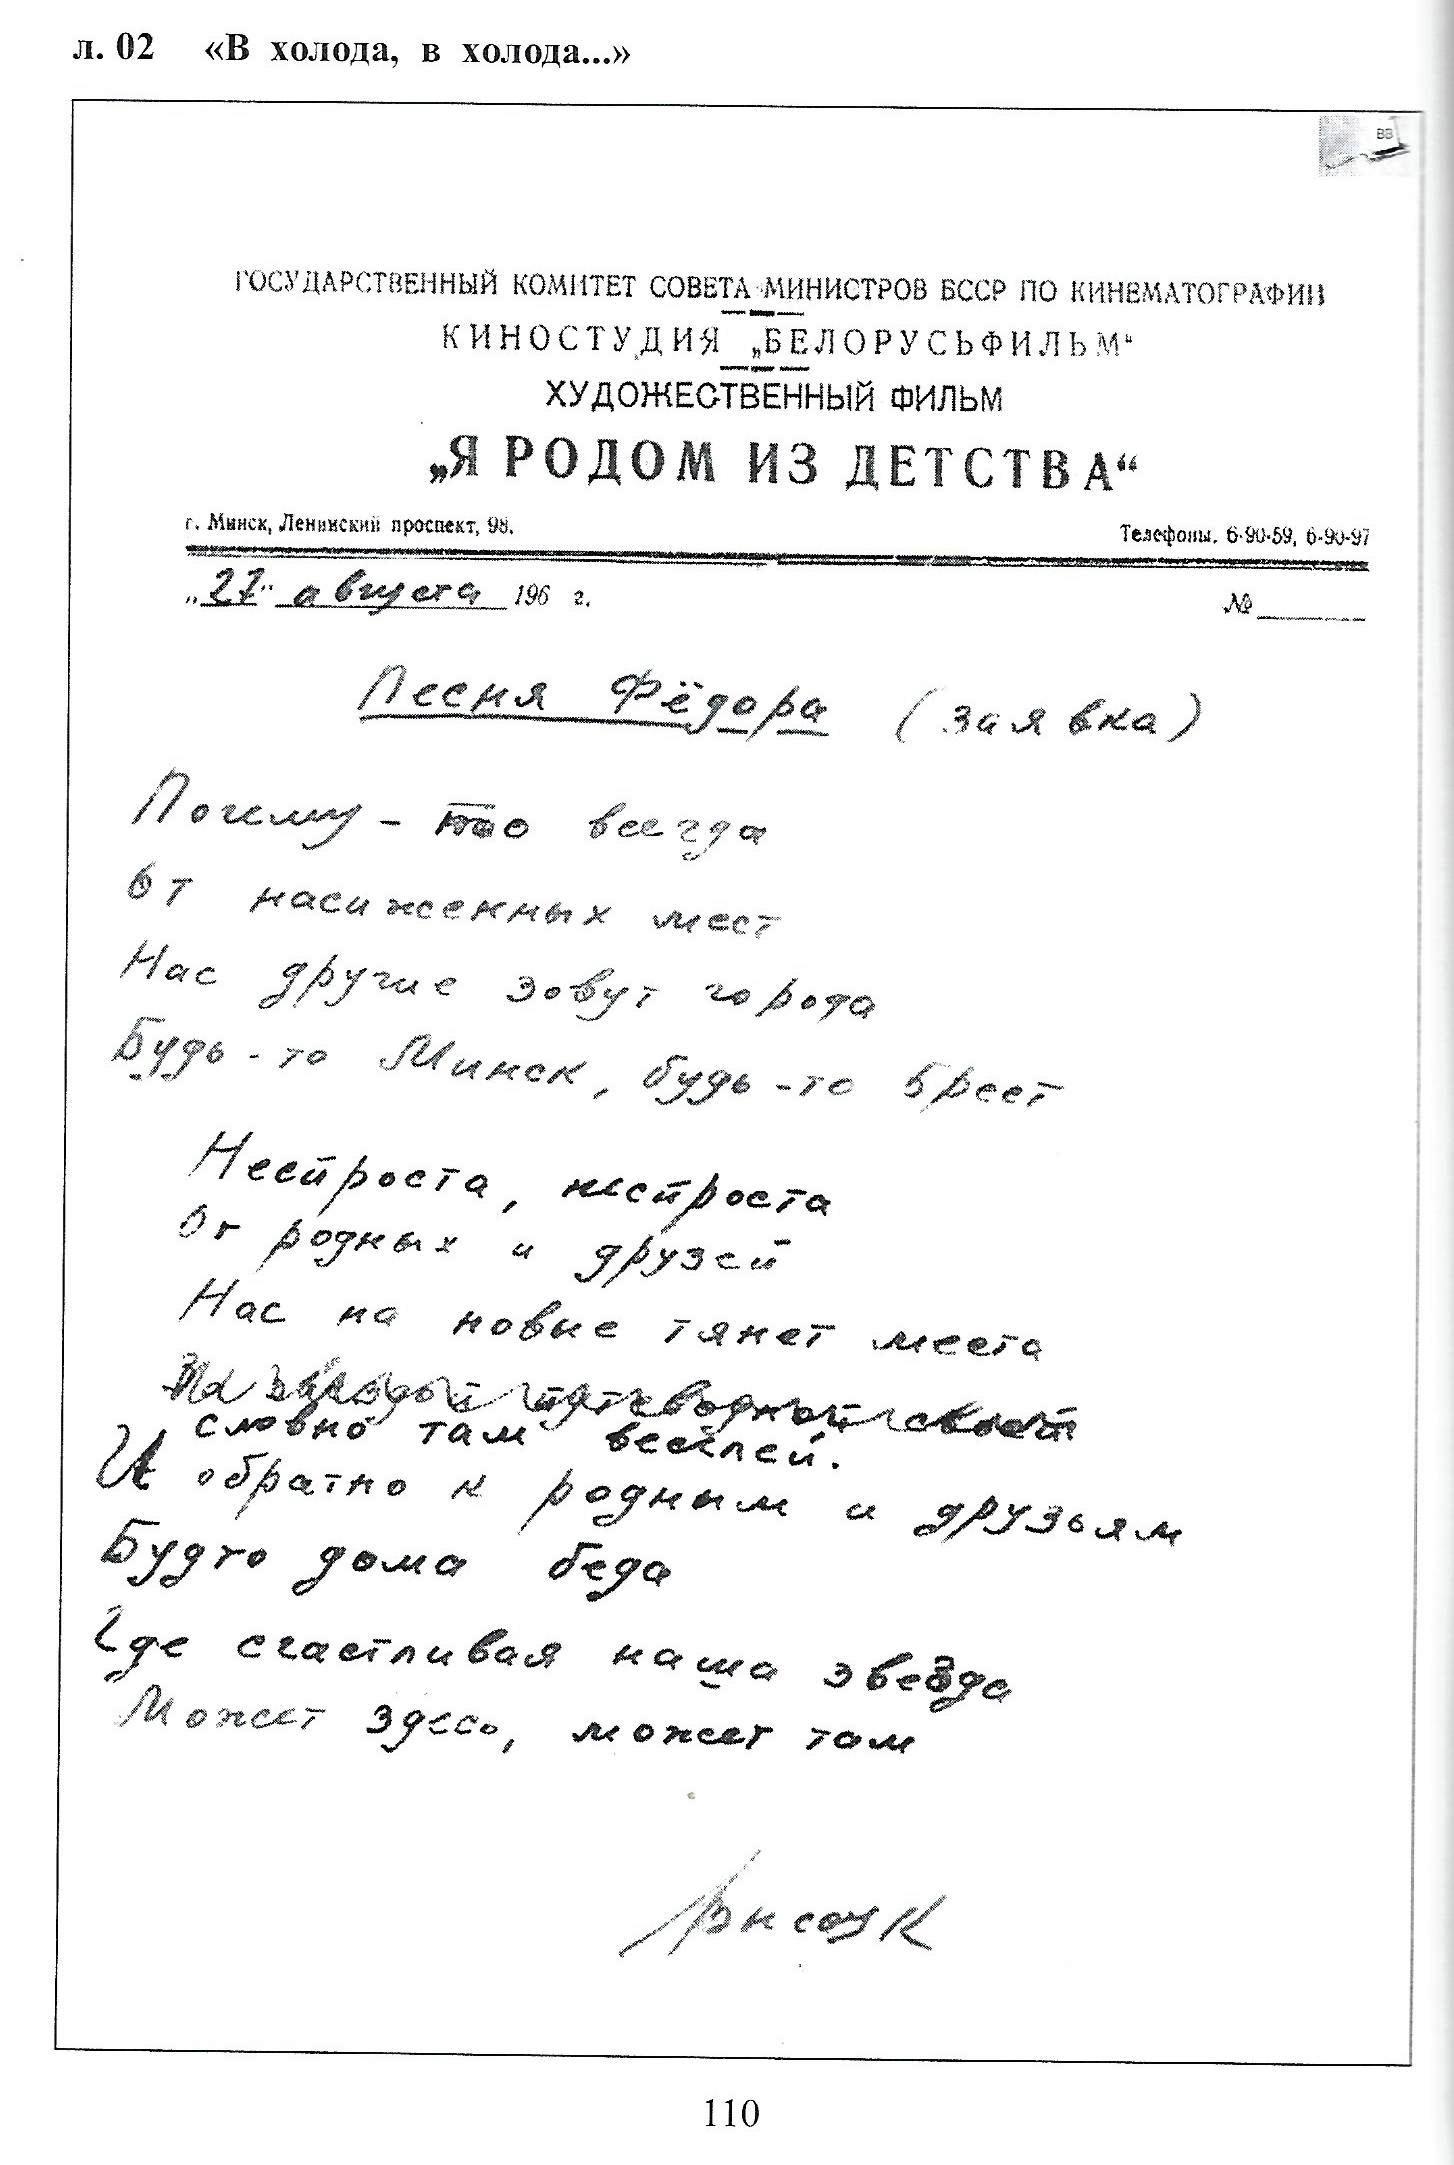 л. 02 «В холода, в холода...»
ВВ
ГОСУДАРСТВЕННЫЙ КОМИТЕТ СОВЕТА МИНИСТРОВ БССР ПО КИНЕМАТОГРАФИИ
КИНОСТУДИЯ „БЕЛОРУСЬФИЛЬМ“
ХУДОЖЕСТВЕННЫЙ ФИЛЬМ
„Я РОДОМ ИЗ ДЕТСТВА“
г. Минск, Ленинский проспект, 98. Телефоны. 6-90-59, 6-90-97
„27“ августа 196 г. №
Песня Фёдора (заявка)
Почему-то всегда
От насиженных мест
Нас другие зовут города
Будь-то Минск, будь-то Брест
Неспроста, неспроста
От родных и друзей
Нас на новые тянет места
За звездой путеводной
словно там веселей.
И обратно к родным и друзьям
Будто дома беда
Где счастливая наша звезда
Может здесь, может там
110